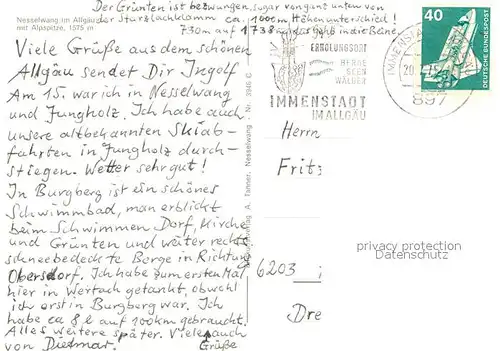 Der Grünten ist bezwungen, sogar von ganz unten von
der Starzlachklamm ca. 1000m Höhenunterschied!
730m auf 1738 m das geht in die Beine.
Nesselwang im Allgäu
mit Alpspitze, 1575 m
Viele Grüße aus dem schönen
Allgäu sendet Dir Ingolf
Am 15. war ich in Nesselwang
und Jungholz. Ich habe auch
unsere altbekannten Skiab-
fahrten in Jungholz durch-
stiegen. Wetter sehr gut!
In Burgberg ist ein schönes
Schwimmbad, man erblickt
beim Schwimmen Dorf, Kirche
und Grünten und weiter rechts
schneebedeckte Berge in Richtung
Oberstdorf. Ich habe zum ersten Mal
hier in Wertach getankt, obwohl
ich erst in Burgberg war. Ich
habe ca 8 l auf 100km gebraucht.
Alles weitere später. Viele
Grüße
von Dietmar.
A. Tanner, Nesselwang
ERHOLUNGSORT
BERGE
SEEN
WÄLDER
IMMENSTADT
IM ALLGÄU
IMMENSTA
20.
897
40
DEUTSCHE BUNDESPOST
Herrn
Fritz
6203
Dre
privacy protection
Datenschutz